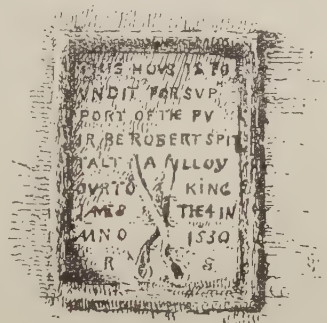 THIS HOUS IS FO
VNDIT FOR SVP
PORT OF THE PV
IR BE ROBERT SPIT
TALT A ILLOV
OVR TO KING
JAMES THE 4 IN
ANNO 1530
R S